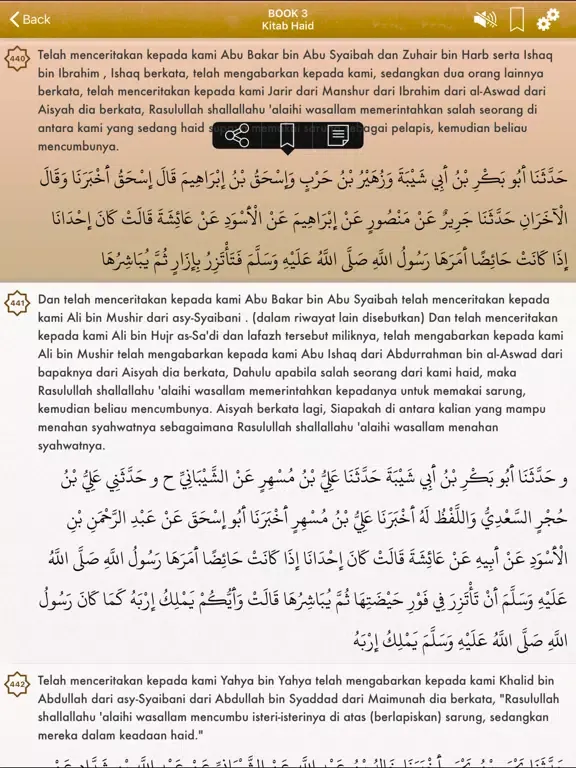 Back
BOOK 3
Kitab Haid
440
Telah menceritakan kepada kami Abu Bakar bin Abu Syaibah dan Zuhair bin Harb serta Ishaq
bin Ibrahim , Ishaq berkata, telah mengabarkan kepada kami, sedangkan dua orang lainnya
berkata, telah menceritakan kepada kami Jarir dari Manshur dari Ibrahim dari al-Aswad dari
Aisyah dia berkata, Rasulullah shallallahu 'alaihi wasallam memerintahkan salah seorang di
antara kami yang sedang haid sebagai pelapis, kemudian beliau
mencumbunya.
حَدَّثَنَا أَبُو بَكْرِ بْنُ أَبِي شَيْبَةَ وَزُهَيْرُ بْنُ حَرْبٍ وَإِسْحَقُ بْنُ إِبْرَاهِيمَ قَالَ إِسْحَقُ أَخْبَرَنَا وَقَالَ
الْآخَرَانِ حَدَّثَنَا جَرِيرٌ عَنْ مَنْصُورٍ عَنْ إِبْرَاهِيمَ عَنْ الْأَسْوَدِ عَنْ عَائِشَةَ قَالَتْ كَانَ إِحْدَانَا
إِذَا كَانَتْ حَائِضًا أَمَرَهَا رَسُولُ اللَّهِ صَلَّى اللَّهُ عَلَيْهِ وَسَلَّمَ فَتَأْتَزِرُ بِإِزَارٍ ثُمَّ يُبَاشِرُهَا
441
Dan telah menceritakan kepada kami Abu Bakar bin Abu Syaibah telah menceritakan kepada
kami Ali bin Mushir dari asy-Syaibani . (dalam riwayat lain disebutkan) Dan telah menceritakan
kepada kami Ali bin Hujr as-Sa'di dan lafazh tersebut miliknya, telah mengabarkan kepada kami
Ali bin Mushir telah mengabarkan kepada kami Abu Ishaq dari Abdurrahman bin al-Aswad dari
bapaknya dari Aisyah dia berkata, Dahulu apabila salah seorang dari kami haid, maka
Rasulullah shallallahu 'alaihi wasallam memerintahkan kepadanya untuk memakai sarung,
kemudian beliau mencumbunya. Aisyah berkata lagi, Siapakah di antara kalian yang mampu
menahan syahwatnya sebagaimana Rasulullah shallallahu 'alaihi wasallam menahan
syahwatnya.
و حَدَّثَنَا أَبُو بَكْرِ بْنُ أَبِي شَيْبَةَ حَدَّثَنَا عَلِيُّ بْنُ مُسْهِرٍ عَنْ الشَّيْبَانِيِّ ح و حَدَّثَنِي عَلِيُّ بْنُ
حُجْرٍ السَّعْدِيُّ وَاللَّفْظُ لَهُ أَخْبَرَنَا عَلِيُّ بْنُ مُسْهِرٍ أَخْبَرَنَا أَبُو إِسْحَقَ عَنْ عَبْدِ الرَّحْمَنِ بْنِ
الْأَسْوَدِ عَنْ أَبِيهِ عَنْ عَائِشَةَ قَالَتْ كَانَ إِحْدَانَا إِذَا كَانَتْ حَائِضًا أَمَرَهَا رَسُولُ اللَّهِ صَلَّى اللَّهُ
عَلَيْهِ وَسَلَّمَ أَنْ تَأْتَزِرَ فِي فَوْرِ حَيْضَتِهَا ثُمَّ يُبَاشِرُهَا قَالَتْ وَأَيُّكُمْ يَمْلِكُ إِرْبَهُ كَمَا كَانَ رَسُولُ
اللَّهِ صَلَّى اللَّهُ عَلَيْهِ وَسَلَّمَ يَمْلِكُ إِرْبَهُ
442
Telah menceritakan kepada kami Yahya bin Yahya telah mengabarkan kepada kami Khalid bin
Abdullah dari asy-Syaibani dari Abdullah bin Syaddad dari Maimunah dia berkata, "Rasulullah
shallallahu 'alaihi wasallam mencumbu isteri-isterinya di atas (berlapiskan) sarung, sedangkan
mereka dalam keadaan haid."